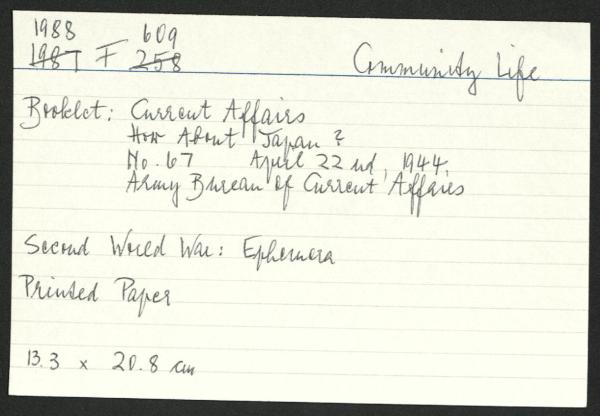 1988 609
1987 F 258 Community Life
Booklet: Current Affairs
How About Japan?
No. 67 April 22nd, 1944.
Army Bureau of Current Affairs
Second World War: Ephemera
Printed Paper
13.3 x 20.8 cm